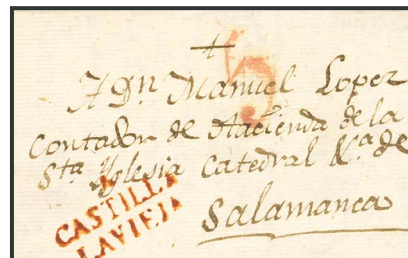 A Dn Manuel Lopez
Contador de Hacienda de la
Sta Yglesia Catedral &a de
Salamanca
5
CASTILLA
LA VIEJA